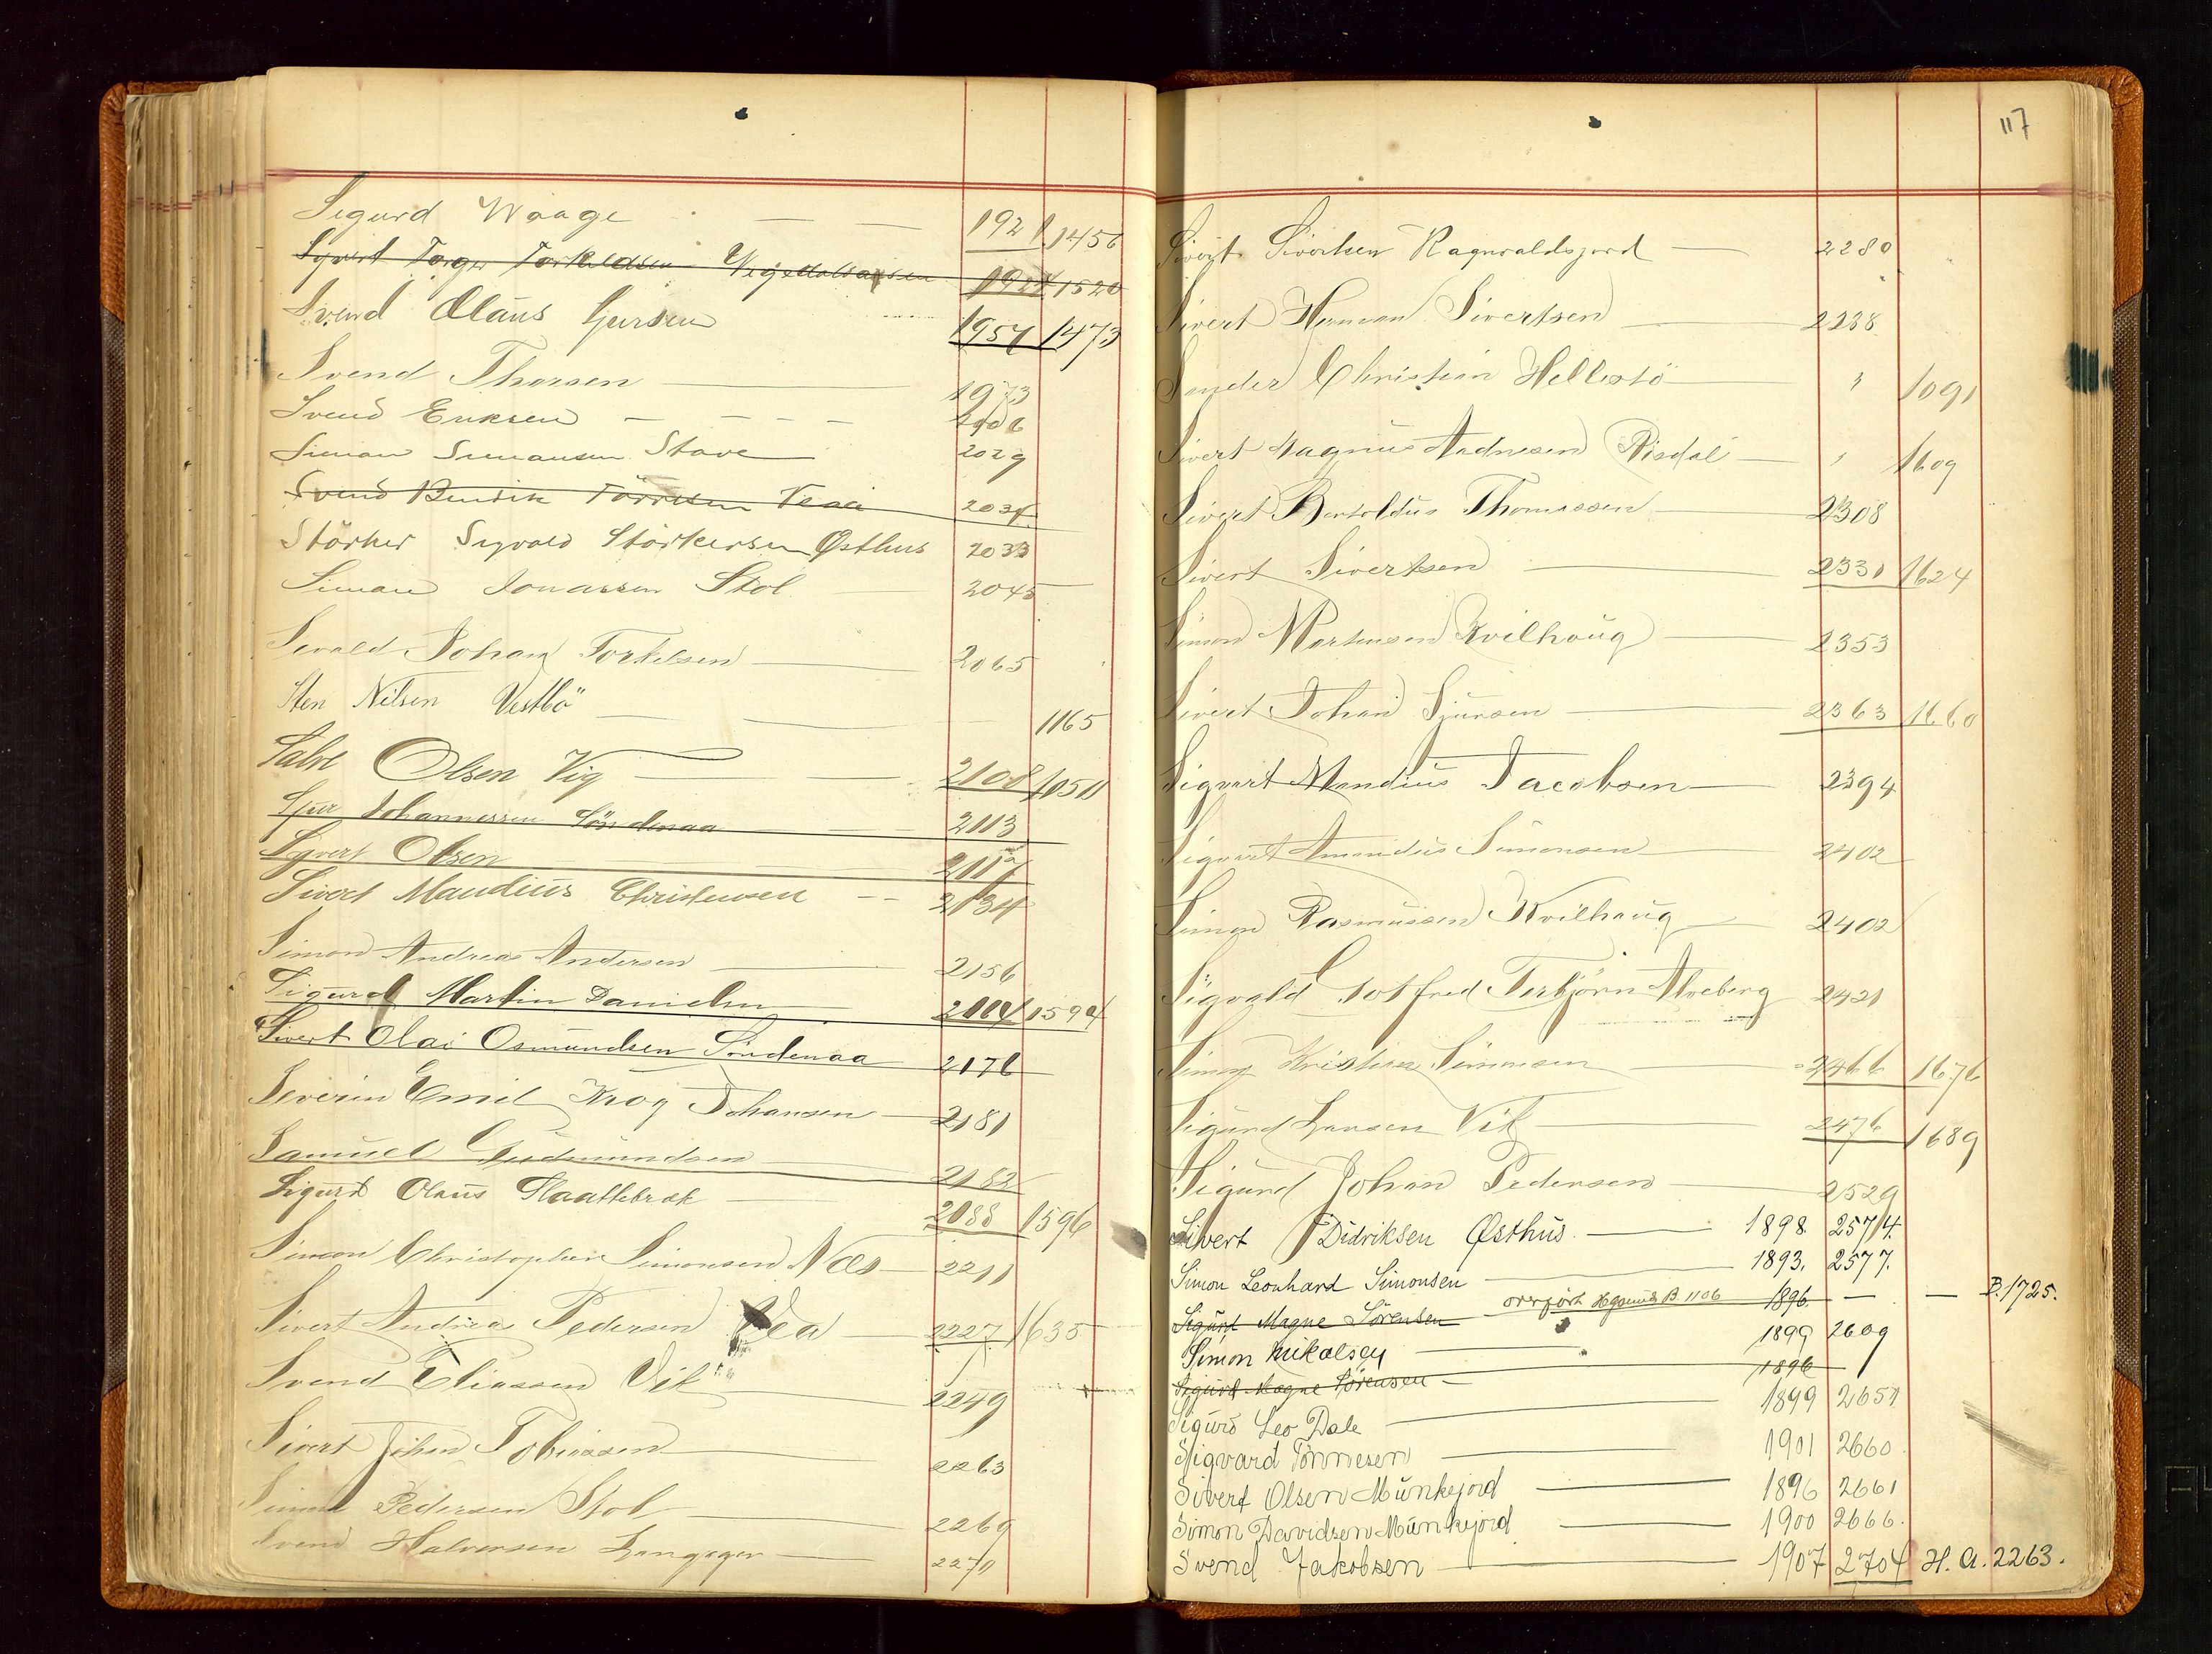 Sigurd Waage — — 1921 1456
Syvert Torger Torkildsen 1924 1520
Svend Olaus 1954 1473
Svend Thorsen — 1973
Svend Eriksen — — — — 2006
Simon Simonsen Stave — 2029
Svend Bendik Törresen Veaa 2034
Störker Sigvald Störkersen Østhus 2033
Simon Jonassen Stol — 2045
Sivald Johan Torkelsen — 2065
Sten Nilsen Vestbö — — 1165
Salve Olsen Vig — — 2108 1050
Sjur Johannessen Söndenaa — 2113
Syvert Olsen 2117
Sivert Mandius Christensen -- 2134
Simon Andreas Andersen — 2156
Sigurd Martin Danielsen 1594
Sivert Olai Osmundsen Söndenaa 2176
Severin Emil Krog Johansen — 2181
Samuel Gudmundsen — 2182
Sigurd Olaus Slaattebræk — 2188 1596
Simon Christopher Simonsen Næs — 2211
Sivert Andreas Pedersen Vea 2227 1635
Svend Eliassen Vik — 2249
Sivert Johan Tobiassen — 2263
Simon Pedersen Stol — 2269
Svend Halvorsen Langager — 2270
117
Sivert Sivertsen Ragnvaldsjord — 2280
Sivert Herman Sivertsen — 2238
Sander Christian Hellestö — " 1091
Sivert Magnus Andresen Risdal — " 1609
Sivert Bertoldus Thomassen — 2308
Sivert Sivertsen — 2330 1624
Simon Mortensen Kvilhaug — 2353
Sivert Johan Sjursen — 2363 1660
Sigvart Mandius Jacobsen — 2394
Sigvart Amandus Simonsen — 2402
Simon Rasmussen Kvilhaug — 2402
Sigvald Gotfred Terbjörn Alveberg 2421
Simon Kristian Simonsen — 2466 1676
Sigurd Larsen Vik — 2476 1689
Sigurd Johan Pedersen — 2529
Sivert Didriksen Østhus. — 1898. 2574.
Simon Leonhard Simonsen — 1893. 2577.
Sigurd Magne Sörensen — overfört Hgsund B 1106 1896. — — B.1725.
Simon Mikalsen — 1899 2609
Sigurd Magne Sörensen — 1896
Sigurd Leo Dale — 1899 2651
Sigvard Tönnesen — 1901 2660
Sivert Olsen Munkejord — 1896 2661
Simon Davidsen Munkejord — 1900 2666.
Svend Jakobsen — 1907 2704 H. a. 2263.